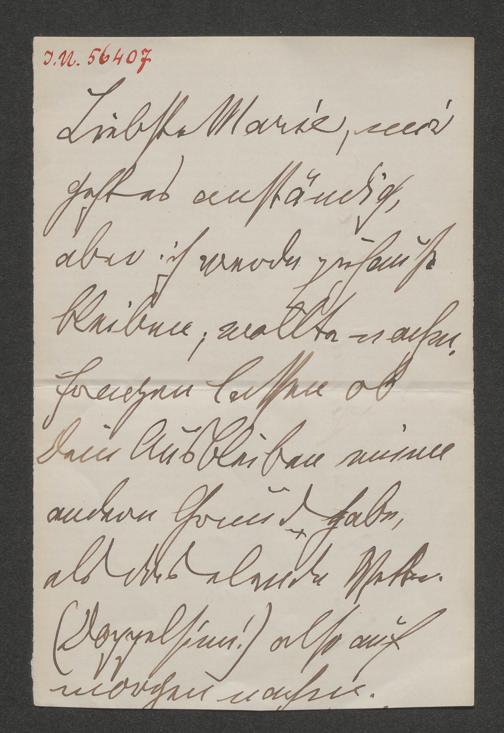 J.N. 56407
Liebste Marie, mir
geht es anständig,
aber ich werde zuhause
bleiben, wollte nach-
fragen lassen ob
Dein Ausbleiben einen
andern Grund habe,
als das elende Wetter.
(Doppelsinn!) also auf
morgen